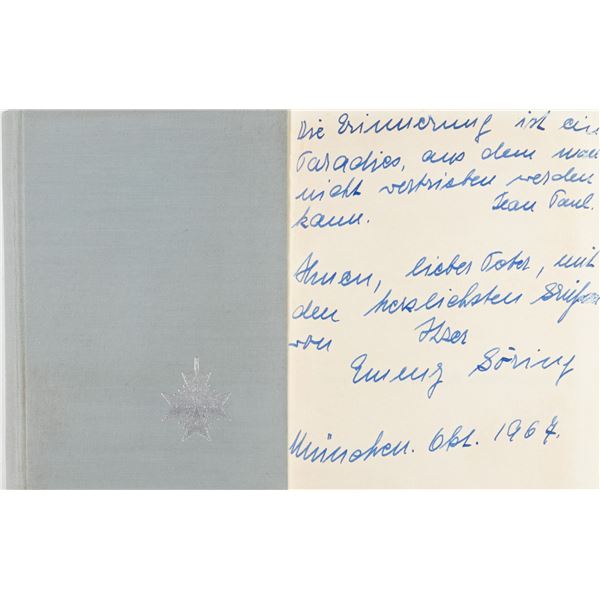 Die Erinnerung ist ein
Paradies, aus dem man
nicht vertrieben werden
kann. Jean Paul.
Ihnen, lieber Tober, mit
den herzlichsten Grüßen
von Ihrer
Emmy Göring
München. Okt. 1967.